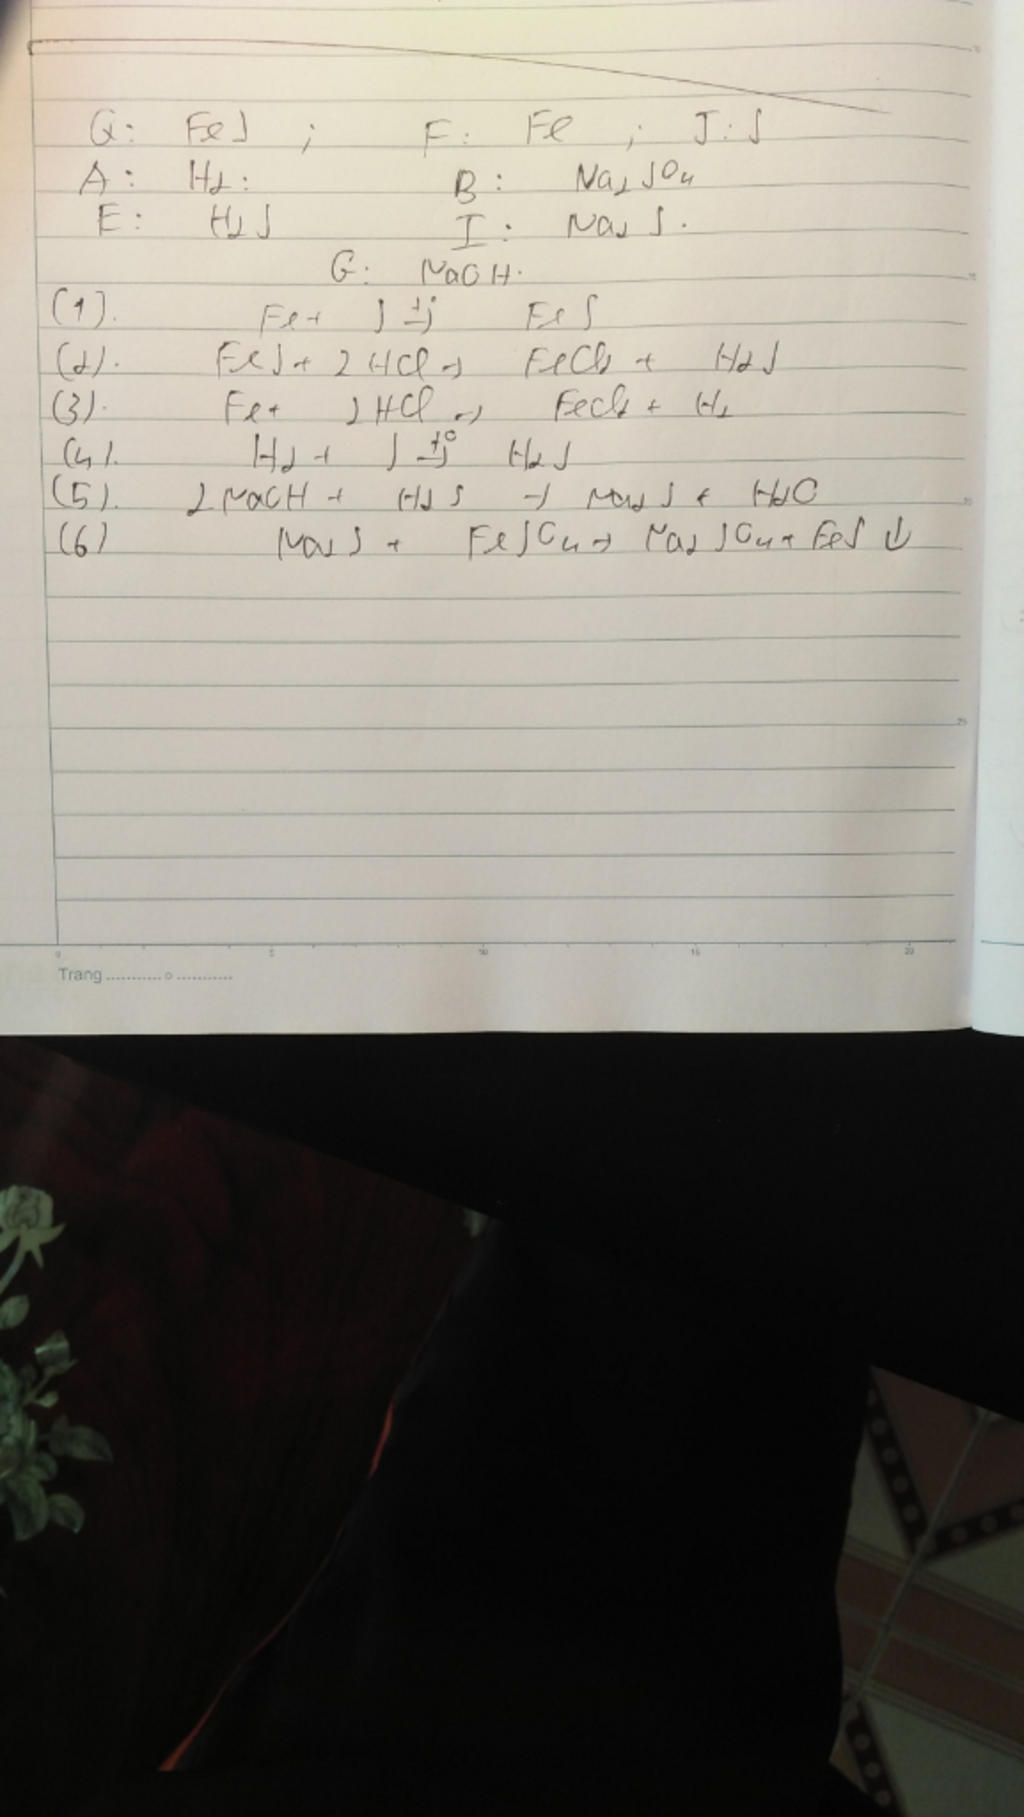 Q: FeS ; F: Fe ; J: S
A: H2: B: Na2SO4
E: H2S I: Na2S.
G: NaOH.
(1). Fe + S t°→ FeS
(2). FeS + 2HCl → FeCl2 + H2S
(3). Fe + 2HCl → FeCl2 + H2
(4). H2 + S t°→ H2S
(5). 2NaOH + H2S → Na2S + H2O
(6) Na2S + FeSO4 → Na2SO4 + FeS ↓
25
0 5 10 15 20
Trang ........... o ...........